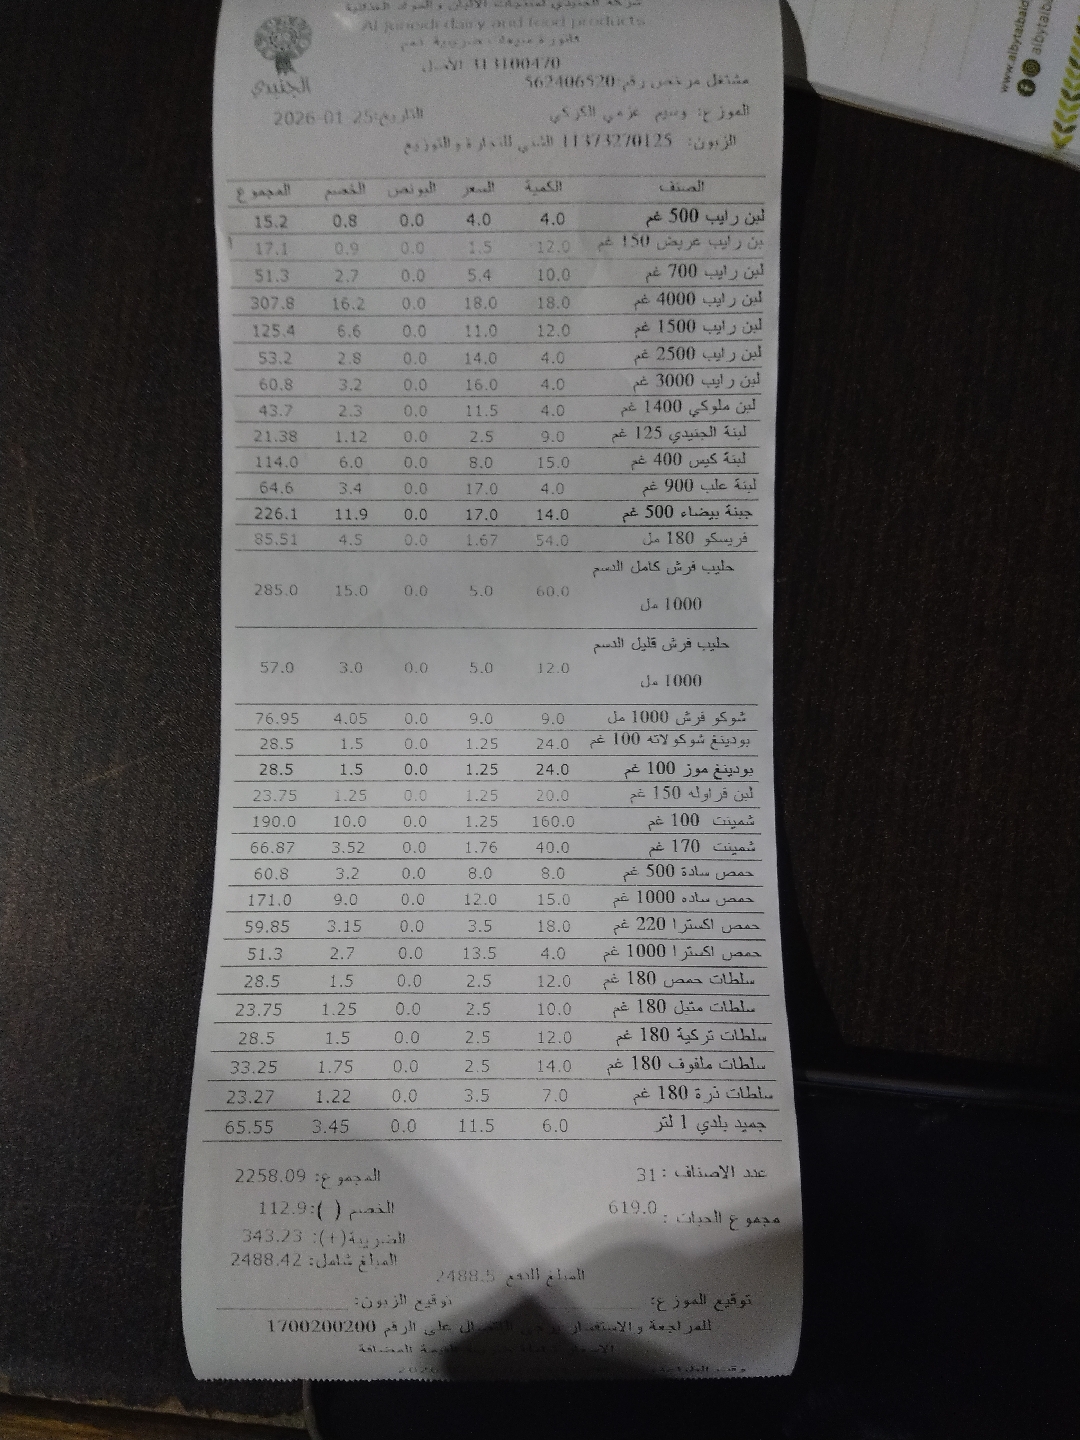 شركة الجنيدي لمنتجات الالبان و المواد الغذائية
Al-junedi dairy and food products
فاتورة مبيعات ضريبية نعم
313100470 الأصل
مشتغل مرخص رقم:562406520
الموزع: وسيم عزمي الكركي التاريخ:2026-01-25
الزبون: 11373270125 للتجارة والتوزيع
الجنيدي
الصنف الكمية السعر البونص الخصم المجموع
لبن رايب 500 غم 4.0 4.0 0.0 0.8 15.2
بن رايب عريض 150 غم 12.0 1.5 0.0 0.9 17.1
لبن رايب 700 غم 10.0 5.4 0.0 2.7 51.3
لبن رايب 4000 غم 18.0 18.0 0.0 16.2 307.8
لبن رايب 1500 غم 12.0 11.0 0.0 6.6 125.4
لبن رايب 2500 غم 4.0 14.0 0.0 2.8 53.2
لبن رايب 3000 غم 4.0 16.0 0.0 3.2 60.8
لبن ملوكي 1400 غم 4.0 11.5 0.0 2.3 43.7
لبنة الجنيدي 125 غم 9.0 2.5 0.0 1.12 21.38
لبنة كيس 400 غم 15.0 8.0 0.0 6.0 114.0
لبنة علب 900 غم 4.0 17.0 0.0 3.4 64.6
جبنة بيضاء 500 غم 14.0 17.0 0.0 11.9 226.1
فريسكو 180 مل 54.0 1.67 0.0 4.5 85.51
حليب فرش كامل الدسم
1000 مل 60.0 5.0 0.0 15.0 285.0
حليب فرش قليل الدسم
1000 مل 12.0 5.0 0.0 3.0 57.0
شوكو فرش 1000 مل 9.0 9.0 0.0 4.05 76.95
بودينغ شوكولاته 100 غم 24.0 1.25 0.0 1.5 28.5
بودينغ موز 100 غم 24.0 1.25 0.0 1.5 28.5
لبن فراوله 150 غم 20.0 1.25 0.0 1.25 23.75
شمينت 100 غم 160.0 1.25 0.0 10.0 190.0
شمينت 170 غم 40.0 1.76 0.0 3.52 66.87
حمص سادة 500 غم 8.0 8.0 0.0 3.2 60.8
حمص ساده 1000 غم 15.0 12.0 0.0 9.0 171.0
حمص اكسترا 220 غم 18.0 3.5 0.0 3.15 59.85
حمص اكسترا 1000 غم 4.0 13.5 0.0 2.7 51.3
سلطات حمص 180 غم 12.0 2.5 0.0 1.5 28.5
سلطات متبل 180 غم 10.0 2.5 0.0 1.25 23.75
سلطات تركية 180 غم 12.0 2.5 0.0 1.5 28.5
سلطات ملفوف 180 غم 14.0 2.5 0.0 1.75 33.25
سلطات ذرة 180 غم 7.0 3.5 0.0 1.22 23.27
جميد بلدي 1 لتر 6.0 11.5 0.0 3.45 65.55
عدد الاصناف : 31 المجموع: 2258.09
مجموع الحبات : 619.0 الخصم ( ):112.9
الضريبة(+): 343.23
المبلغ شامل: 2488.42
المبلغ للدفع 2488.5
توقيع الموزع: توقيع الزبون:
للمراجعة والاستفسار يرجى الاتصال على الرقم 1700200200
الاسعار شاملة ضريبة القيمة المضافة
www.albytalbald
albytalba